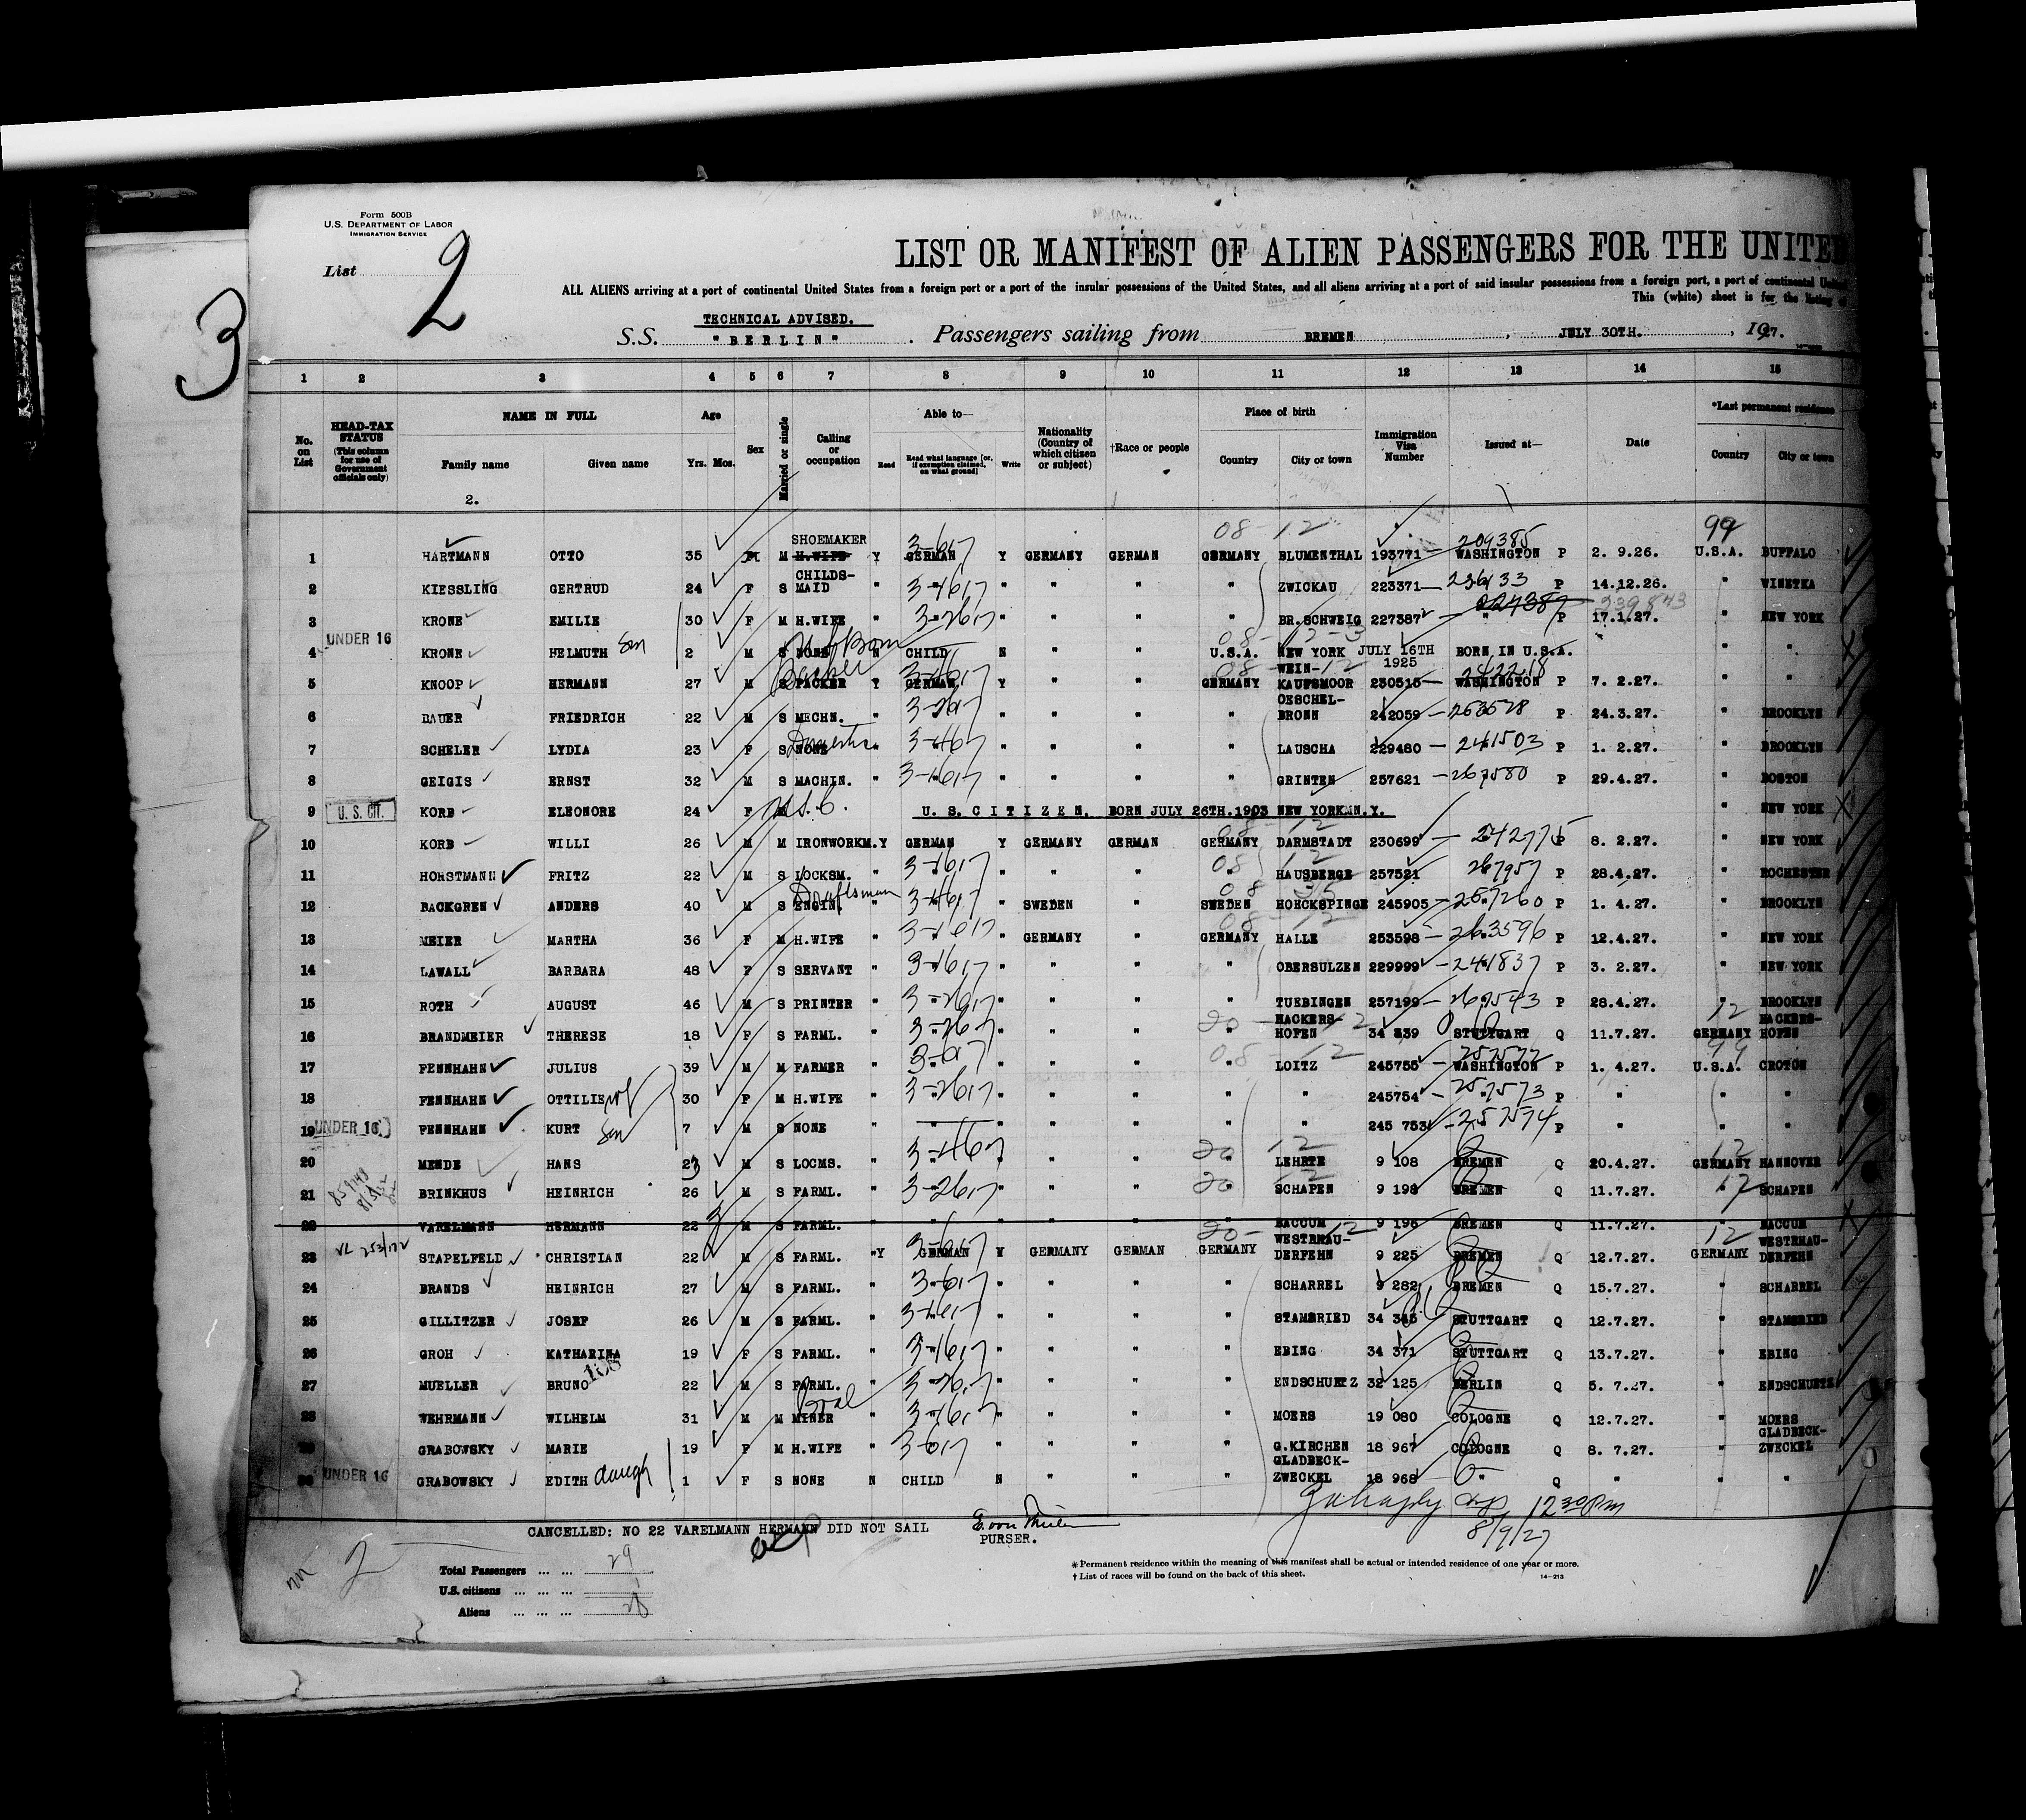 Form 500B
U.S. DEPARTMENT OF LABOR
IMMIGRATION SERVICE
List 2
3
LIST OR MANIFEST OF ALIEN PASSENGERS FOR THE UNITED
ALL ALIENS arriving at a port of continental United States from a foreign port or a port of the insular possessions of the United States, and all aliens arriving at a port of said insular possessions from a foreign port, a port of continental
This (white) sheet is for the listing
TECHNICAL ADVISED.
S.S. "BERLIN" . Passengers sailing from BREMEN , JULY 30TH. , 1927.
1 2 3 4 5 6 7 8 9 10 11 12 13 14 15
No. on List
HEAD-TAX STATUS (This column for use of Government officials only)
NAME IN FULL Family name Given name
Age Yrs. Mos.
Sex
Married or single
Calling or occupation
Able to— Read Read what language [or, if exemption claimed, on what ground] Write
Nationality (Country of which citizen or subject)
†Race or people
Place of birth Country City or town
Immigration Visa Number
Issued at—
Date
*Last permanent residence Country City or town
2.
1 HARTMANN OTTO 35 M M SHOEMAKER H.WIFE Y GERMAN Y GERMANY GERMAN GERMANY BLUMENTHAL 193771 209385 WASHINGTON P 2. 9.26. U.S.A. BUFFALO
2 KIESSLING GERTRUD 24 F S CHILDS-MAID " " " " " " ZWICKAU 223371 236133 P 14.12.26. " WINETKA
3 KRONE EMILIE 30 F M H.WIFE " " " " " " BR.SCHWEIG 227387 " P 17.1.27. 239843 " NEW YORK
UNDER 16
4 KRONE HELMUTH Son 2 M S NONE N CHILD N " " U.S.A. NEW YORK JULY 16TH 1925 BORN IN U.S.A. " "
5 KNOOP HERMANN 27 M S PACKER Y GERMAN Y " " GERMANY WEIN-KAUFSMOOR 230515 WASHINGTON P 7. 2.27. " "
6 BAUER FRIEDRICH 22 M S MECHN. " " " " " " OESCHEL-BRONN 242059 263578 P 24.3.27. " BROOKLYN
7 SCHELER LYDIA 23 F S NONE Domestic " " " " " " LAUSCHA 229480 241503 P 1. 2.27. " BROOKLYN
8 GEIGIS ERNST 32 M S MACHIN. " " " " " " GRINTEN 257621 267580 P 29.4.27. " BOSTON
U. S. CIT.
9 KORB ELEONORE 24 F M U.S.C. U. S. CITIZEN. BORN JULY 26TH.1903 NEW YORKMN.Y. " NEW YORK
10 KORB WILLI 26 M M IRONWORKM. Y GERMAN Y GERMANY GERMAN GERMANY DARMSTADT 230699 242775 P 8. 2.27. " NEW YORK
11 HORSTMANN FRITZ 22 M S LOCKSM. " " " " " " HAUSBERGE 257521 267957 P 28.4.27. " ROCHESTER
12 BACKGREN ANDERS 40 M S ENGIN. Draftsman " " " SWEDEN " SWEDEN HORCKSPINGE 245905 257260 P 1. 4.27. " BROOKLYN
13 MEIER MARTHA 36 F M H.WIFE " " " GERMANY " GERMANY HALLE 253598 263596 P 12.4.27. " NEW YORK
14 LAWALL BARBARA 48 F S SERVANT " " " " " " OBERSULZEN 229999 241837 P 3. 2.27. " NEW YORK
15 ROTH AUGUST 46 M S PRINTER " " " " " " TUEBINGEN 257199 267543 P 28.4.27. " BROOKLYN
16 BRANDMEIER THERESE 18 F S FARML. " " " " " " HACKERS-HOFEN 34 839 STUTTGART Q 11.7.27. GERMANY HACKERS-HOFEN
17 FENNHAHN JULIUS 39 M M FARMER " " " " " " LOITZ 245755 257572 WASHINGTON P 1. 4.27. U.S.A. CROTON
18 FENNHAHN OTTILIE wf 30 F M H.WIFE " " " " " " " 245754 257573 P " " "
UNDER 16
19 FENNHAHN KURT Son 7 M S NONE " " " " " " " 245 753 257574 P " " "
20 MENDE HANS 23 M S LOCMS. " " " " " " LEHRTE 9 108 BREMEN Q 20.4.27. GERMANY HANNOVER
21 BRINKHUS HEINRICH 26 M S FARML. " " " " " " SCHAPEN 9 198 BREMEN Q 11.7.27. " SCHAPEN
22 VARELMANN HERMANN 22 M S FARML. " " " " " " BACCUM 9 196 BREMEN Q 11.7.27. " BACCUM
23 STAPELFELD CHRISTIAN 22 M S FARML. "Y GERMAN Y GERMANY GERMAN GERMANY WESTRHAU-DERFEHN 9 225 BREMEN Q 12.7.27. GERMANY WESTRHAU-DERFEHN
24 BRANDS HEINRICH 27 M S FARML. " " " " " " SCHARREL 9 282 BREMEN Q 15.7.27. " SCHARREL
25 GILLITZER JOSEF 26 M S FARML. " " " " " " STAMSRIED 34 345 STUTTGART Q 12.7.27. " STAMSRIED
26 GROH KATHARINA 19 F S FARML. " " " " " " EBING 34 371 STUTTGART Q 13.7.27. " EBING
27 MUELLER BRUNO 22 M S FARML. " " " " " " ENDSCHUETZ 32 125 BERLIN Q 5. 7.27. " ENDSCHUETZ
28 WEHRMANN WILHELM 31 M M MINER " " " " " " MOERS 19 080 COLOGNE Q 12.7.27. " MOERS
29 GRABOWSKY MARIE 19 F M H.WIFE " " " " " " G.KIRCHEN 18 967 COLOGNE Q 8. 7.27. " GLADBECK-ZWECKEL
UNDER 16
30 GRABOWSKY EDITH daugh 1 F S NONE N CHILD N " " " GLADBECK-ZWECKEL 18 968 " Q " " "
12 30 Pm
8/9/27
CANCELLED: NO 22 VARELMANN HERMANN DID NOT SAIL
PURSER.
2
Total Passengers ... ... 29
U.S. citizens ... ... ... 1
Aliens ... ... ... 28
*Permanent residence within the meaning of this manifest shall be actual or intended residence of one year or more.
†List of races will be found on the back of this sheet.
14—213